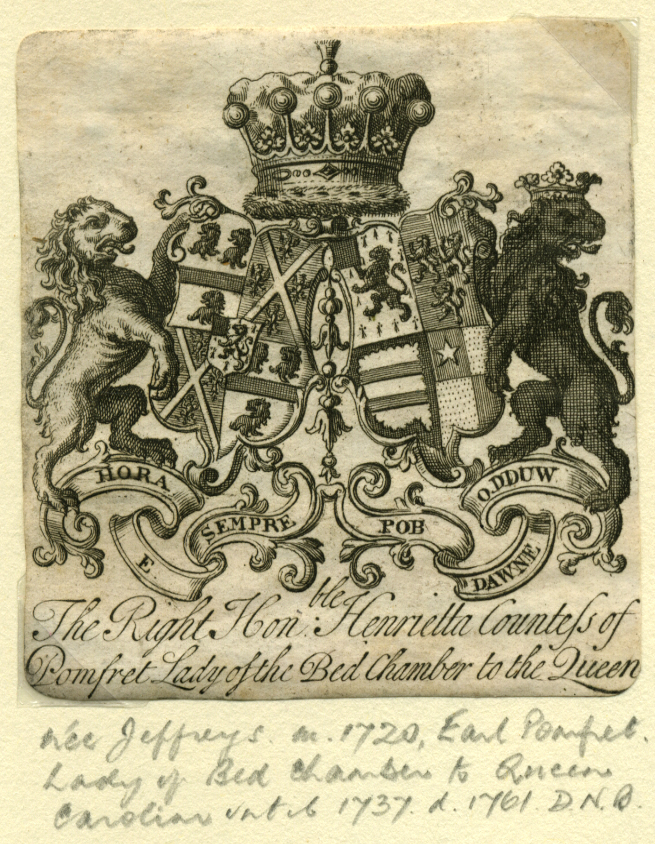 HORA
E
SEMPRE
POB
DAWNE
O.DDUW
The Right Hon.ble Henrietta Countess of
Pomfret Lady of the Bed Chamber to the Queen
née Jeffreys. m. 1720, Earl Pomfret.
Lady of Bed Chamber to Queen
Caroline until 1737. d. 1761. D.N.B.